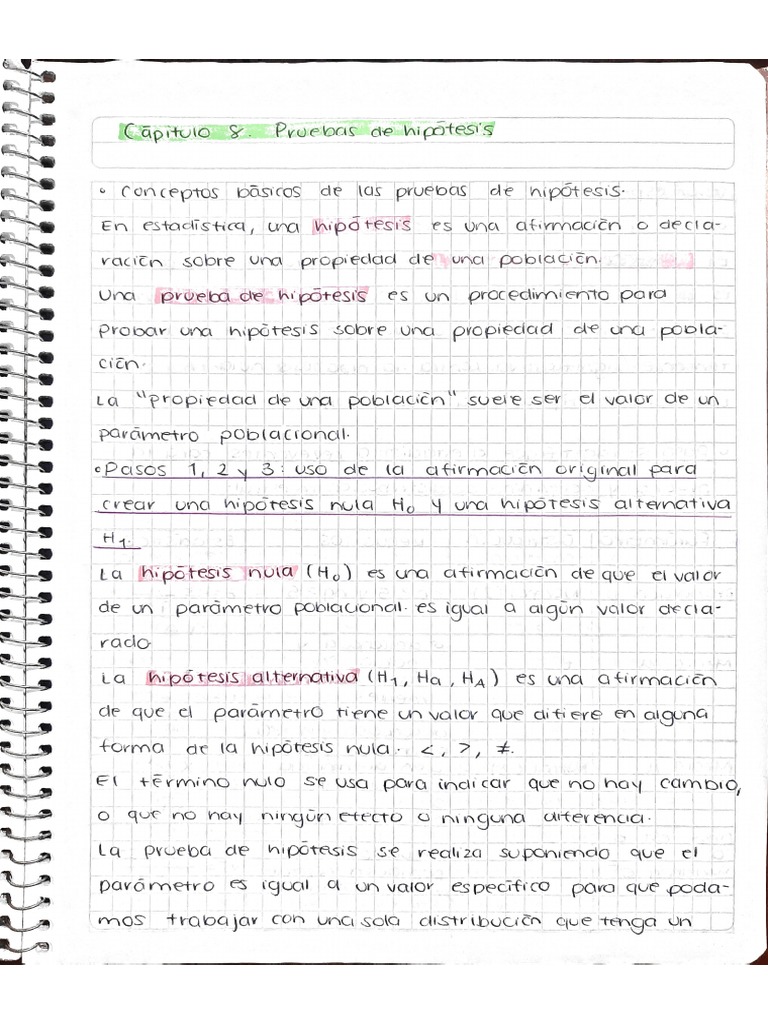 Capítulo 8. Pruebas de hipótesis
• Conceptos básicos de las pruebas de hipótesis.
En estadística, una hipótesis es una afirmación o decla-
ración sobre una propiedad de una población.
Una prueba de hipótesis es un procedimiento para
probar una hipótesis sobre una propiedad de una pobla-
ción.
La "propiedad de una población" suele ser el valor de un
parámetro poblacional.
• Pasos 1, 2 y 3: uso de la afirmación original para
crear una hipótesis nula H₀ y una hipótesis alternativa
H₁.
La hipótesis nula (H₀) es una afirmación de que el valor
de un parámetro poblacional es igual a algún valor decla-
rado
La hipótesis alternativa (H₁, Ha, H_A) es una afirmación
de que el parámetro tiene un valor que difiere en alguna
forma de la hipótesis nula. <, >, ≠.
El término nulo se usa para indicar que no hay cambio,
o que no hay ningún efecto o ninguna diferencia.
La prueba de hipótesis se realiza suponiendo que el
parámetro es igual a un valor específico para que poda-
mos trabajar con una sola distribución que tenga un